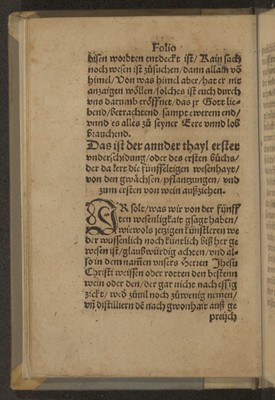 Folio
disen wordten entdeckt ist / Kain sach
noch wesen ist zůsuchen / dann allain võ
himel / Von was himel aber / hat er nit
anzaigen wöllen / solches ist euch durch
vns darumb eröffnet / das jr Gott lie-
bend / betrachtend / sampt ewerem end /
vnnd es alles zů seyner Eere vnnd lob
brauchend.
Das ist der annder thayl erster
vnderschidung / oder des ersten bůchs /
der da lert die fünffeltigen wesenhayt /
von den gwächsen / pflantzungen / vnd
zum ersten von wein außziehen.
IR solt / was wir von der fünff
ten wesenligkait gsagt haben /
wiewols jetzigen künstleren we
der wussenlich noch küntlich biß her ge
wesen ist / glaubwürdig achten / vnd al-
so in dem namen vnsers Herren Jhesu
Christi weissen oder rotten den bestenn
wein oder den / der gat nicht nach essig
zickt / wed zůuil noch zůwenig nemen /
vñ distilliern dẽ nach gwonhait auß ge
preüch